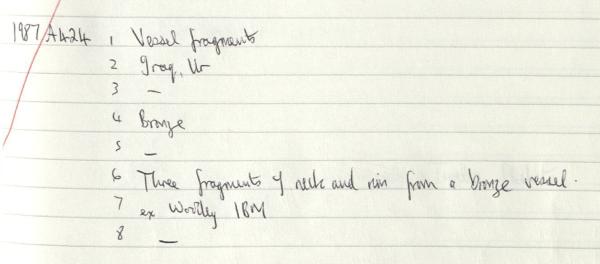 1987 A424 1 Vessel fragments
2 Iraq, Ur
3 —
4 Bronze
5 —
6 Three fragments of neck and rim from a bronze vessel.
7 ex Woolley IBM
8 —